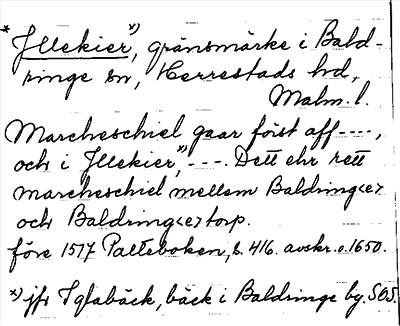 * Jllekier *), gränsmärke i Bald-
ringe sn, Herrestads hd,
Malm. l.
Marcheschiel gaar först aff ----,
och i Jllekier, *) ---. Dett ehr rett
marcheschiel mellem Baldring<er
och Baldring<er torp.
före 1517 Palteboken, s. 416. avskr. o. 1650.
*) jfr Iglabäck, bäck i Baldringe by. SOS.